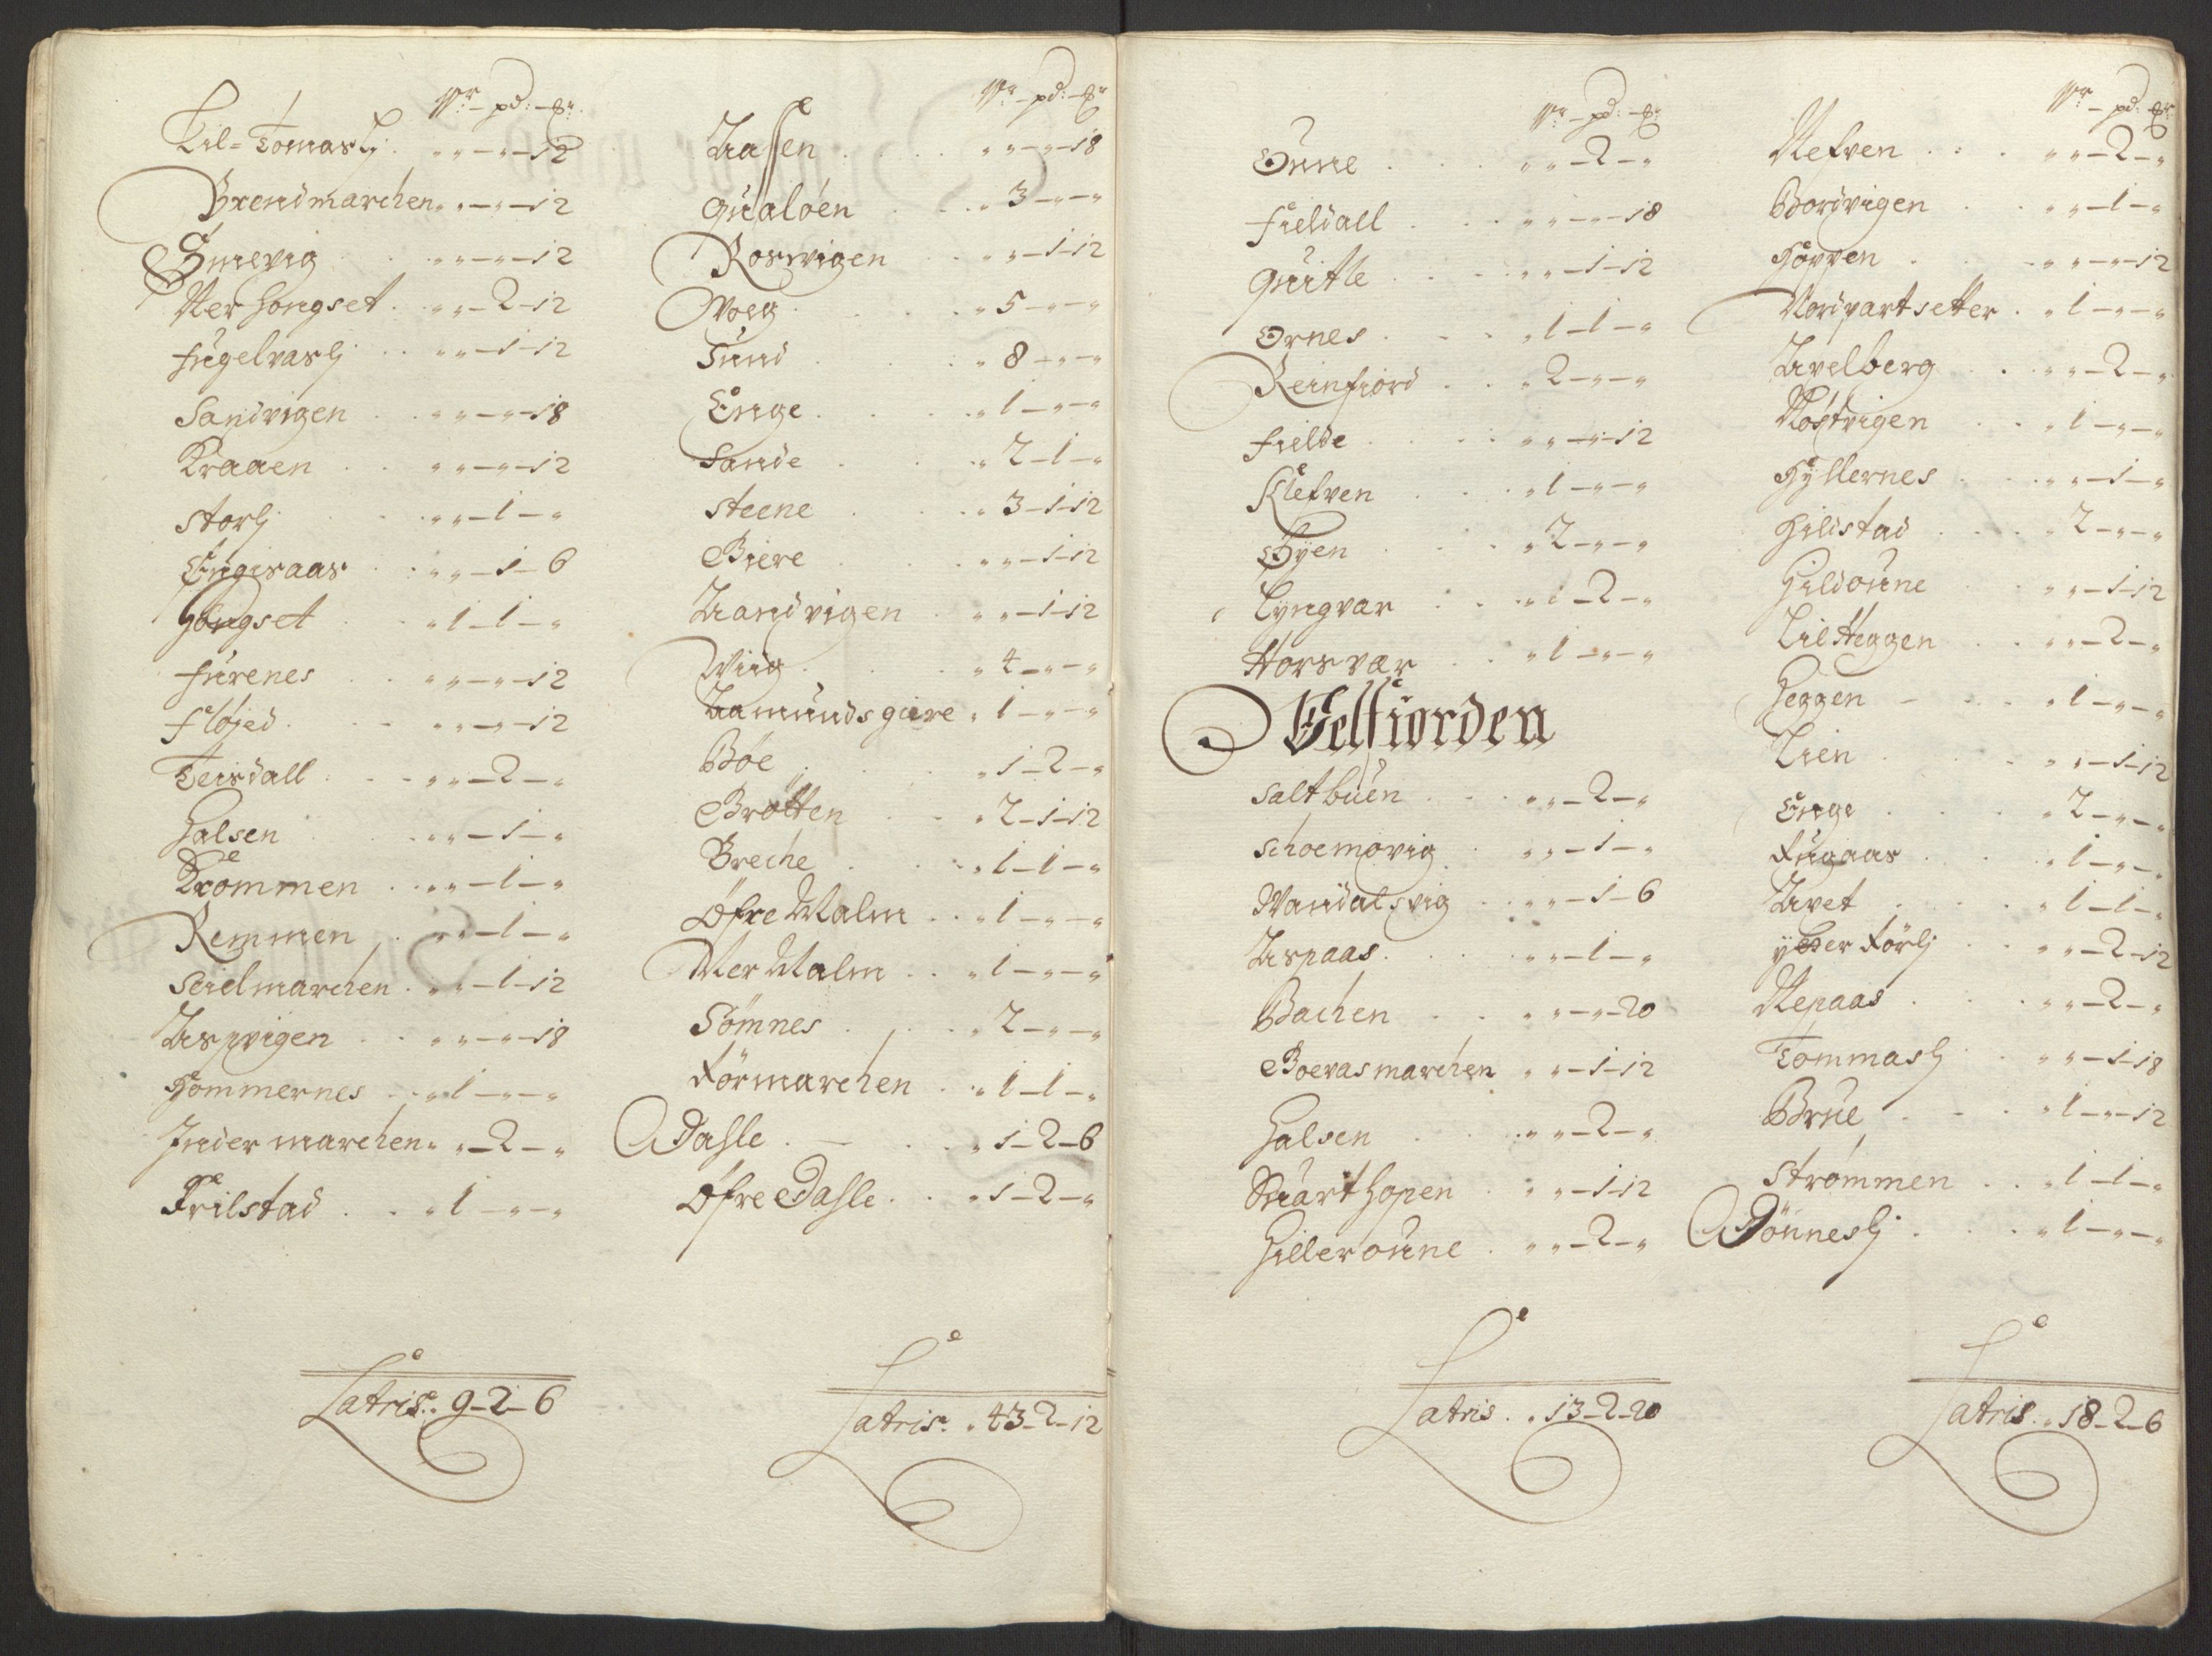 Vr - pd: - Mr
Lil=Tomaslj . " " - " - 12
Brendmarchen " " - " - 12
Snevig " " - " - 12
Ner Hongset . " " - 2 - 12
Fugelvaslj . . " " - 1 - 12
Sandvigen . . " " - " - 18
Kraaen . . " " - " - 12
Storlj . . " " - 1 - "
Engisaas . . " " - 1 - 6
Hongset . . " 1 - 1 - "
Furenes . . " " - " - 12
Fløjed . . " " - " - 12
Teisdall . . . " " - 2 - "
Halsen . . . " " - 1 - "
Krommen . . " " - 1 - "
Remmen . " " - 1 - "
Skielmarchen . " " - 1 - 12
Aspvigen . . " " - " - 18
Hommernes . . " 1 - " - "
Inder marchen " " - 2 - "
Trilstad . . " 1 - " - "
Latris . 9 - 2 - 6
Vr - pd: - Mr
Aasen . . . . " " - " - 18
Qualøen . . . " 3 - " - "
Roswigen . . " " - 1 - 12
Woeg . . . . " 5 - " - "
Sund . . . " 8 - " - "
Enge . . . . " 1 - " - "
Sande . . . " 2 - 1 - "
Steene . . . " 3 - 1 - 12
Biere . . . " " - 1 - 12
Aandvigen . " " - 1 - 12
Wiig . . . " 4 - " - "
Aamundsgiere " 1 - " - "
Bøe . . . " 1 - 2 - "
Brøtten . . " 2 - 1 - 12
Breche . . . " 1 - 1 - "
Øfre Malm . . " 1 - " - "
Ner Malm . . " 1 - " - "
Sömnes . . . " 2 - " - "
Förmarchen . " 1 - 1 - "
Dasle . - . . " 1 - 2 - 6
Øfre Dasle . . " 1 - 2 - "
Latris . " 43 - 2 - 12
Vr - pd: - Mr
Oune . . . " " - 2 - "
Fieldall . . . " " - " - 18
Quitle . . . " " - 1 - 12
Ornes . . . " 1 - 1 - "
Reinfiord . . " 2 - " - "
Fielde . . . . " " - " - 12
Klefven . . . " 1 - " - "
Øyen . . . " 2 - " - "
Lyngvær . . " " - 2 - "
Horsvær . . " 1 - " - "
Velfiorden
Saltbuen . . . " " - 2 - "
Schoemovig . " " - 1 - "
Wandalsvig . . " " - 1 - 6
Aspaas . . . " " - 1 - "
Bachen . . " " - " - 20
Boevasmarchen " " - 1 - 12
Halsen . . . " " - 2 - "
Suart hopen . " " - 1 - 12
Hilleroune . " " - 2 - "
Latris . . 13 - 2 - 20
Vr - pd: - Mr
Nefven . . . " " - 2 - "
Bordvigen . . " " - 1 - "
Hörven . . . " " - " - 12
Nordvartsetter . " 1 - " - "
Avelberg . . . " " - 2 - "
Nöstvigen . . " 1 - " - "
Hyllernes . . . " " - 1 - "
Hildstad . . . " 2 - " - "
Hildoune . . " " - 1 - 12
Lil Heggen . . " " - 2 - "
Heggen - . . . " 1 - " - "
Lien . . . " " - 1 - 12
Enge . . . " 2 - " - "
Fugaas . . . " 1 - " - "
Avet . . . " 1 - 1 - "
Ytter Förlj . . " " - 2 - 12
Nepaas . . . " " - 2 - "
Tommaslj . . " " - 1 - 18
Brue . - . " 1 - " - 12
Strømmen . . " 1 - 1 - "
Dönneslj . . . " 1 - " - "
Latris . " 18 - 2 - 6